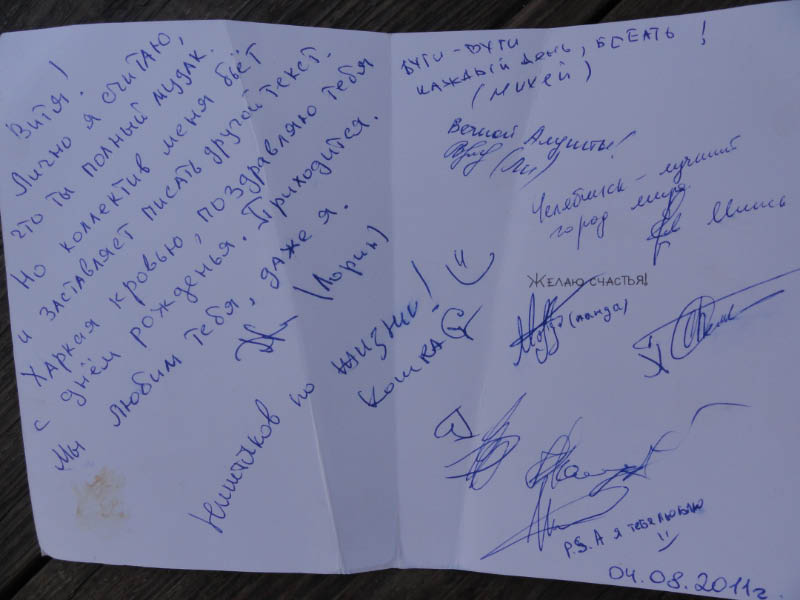 Витя!
Лично я считаю,
что ты полный мудак.
Но коллектив меня бьёт
и заставляет писать другой текст.
Харкая кровью, поздравляю тебя
с днём рожденья. Приходится.
Мы любим тебя, даже я.
(Лорин)
Ништяков по жизни!
Кошка
каждый день, бегать!
(Михей)
Вечной Алушты!
Челябинск - лучший
город мира
Желаю счастья!
(панда)
P.S. А я тебя люблю
04.08.2011г.